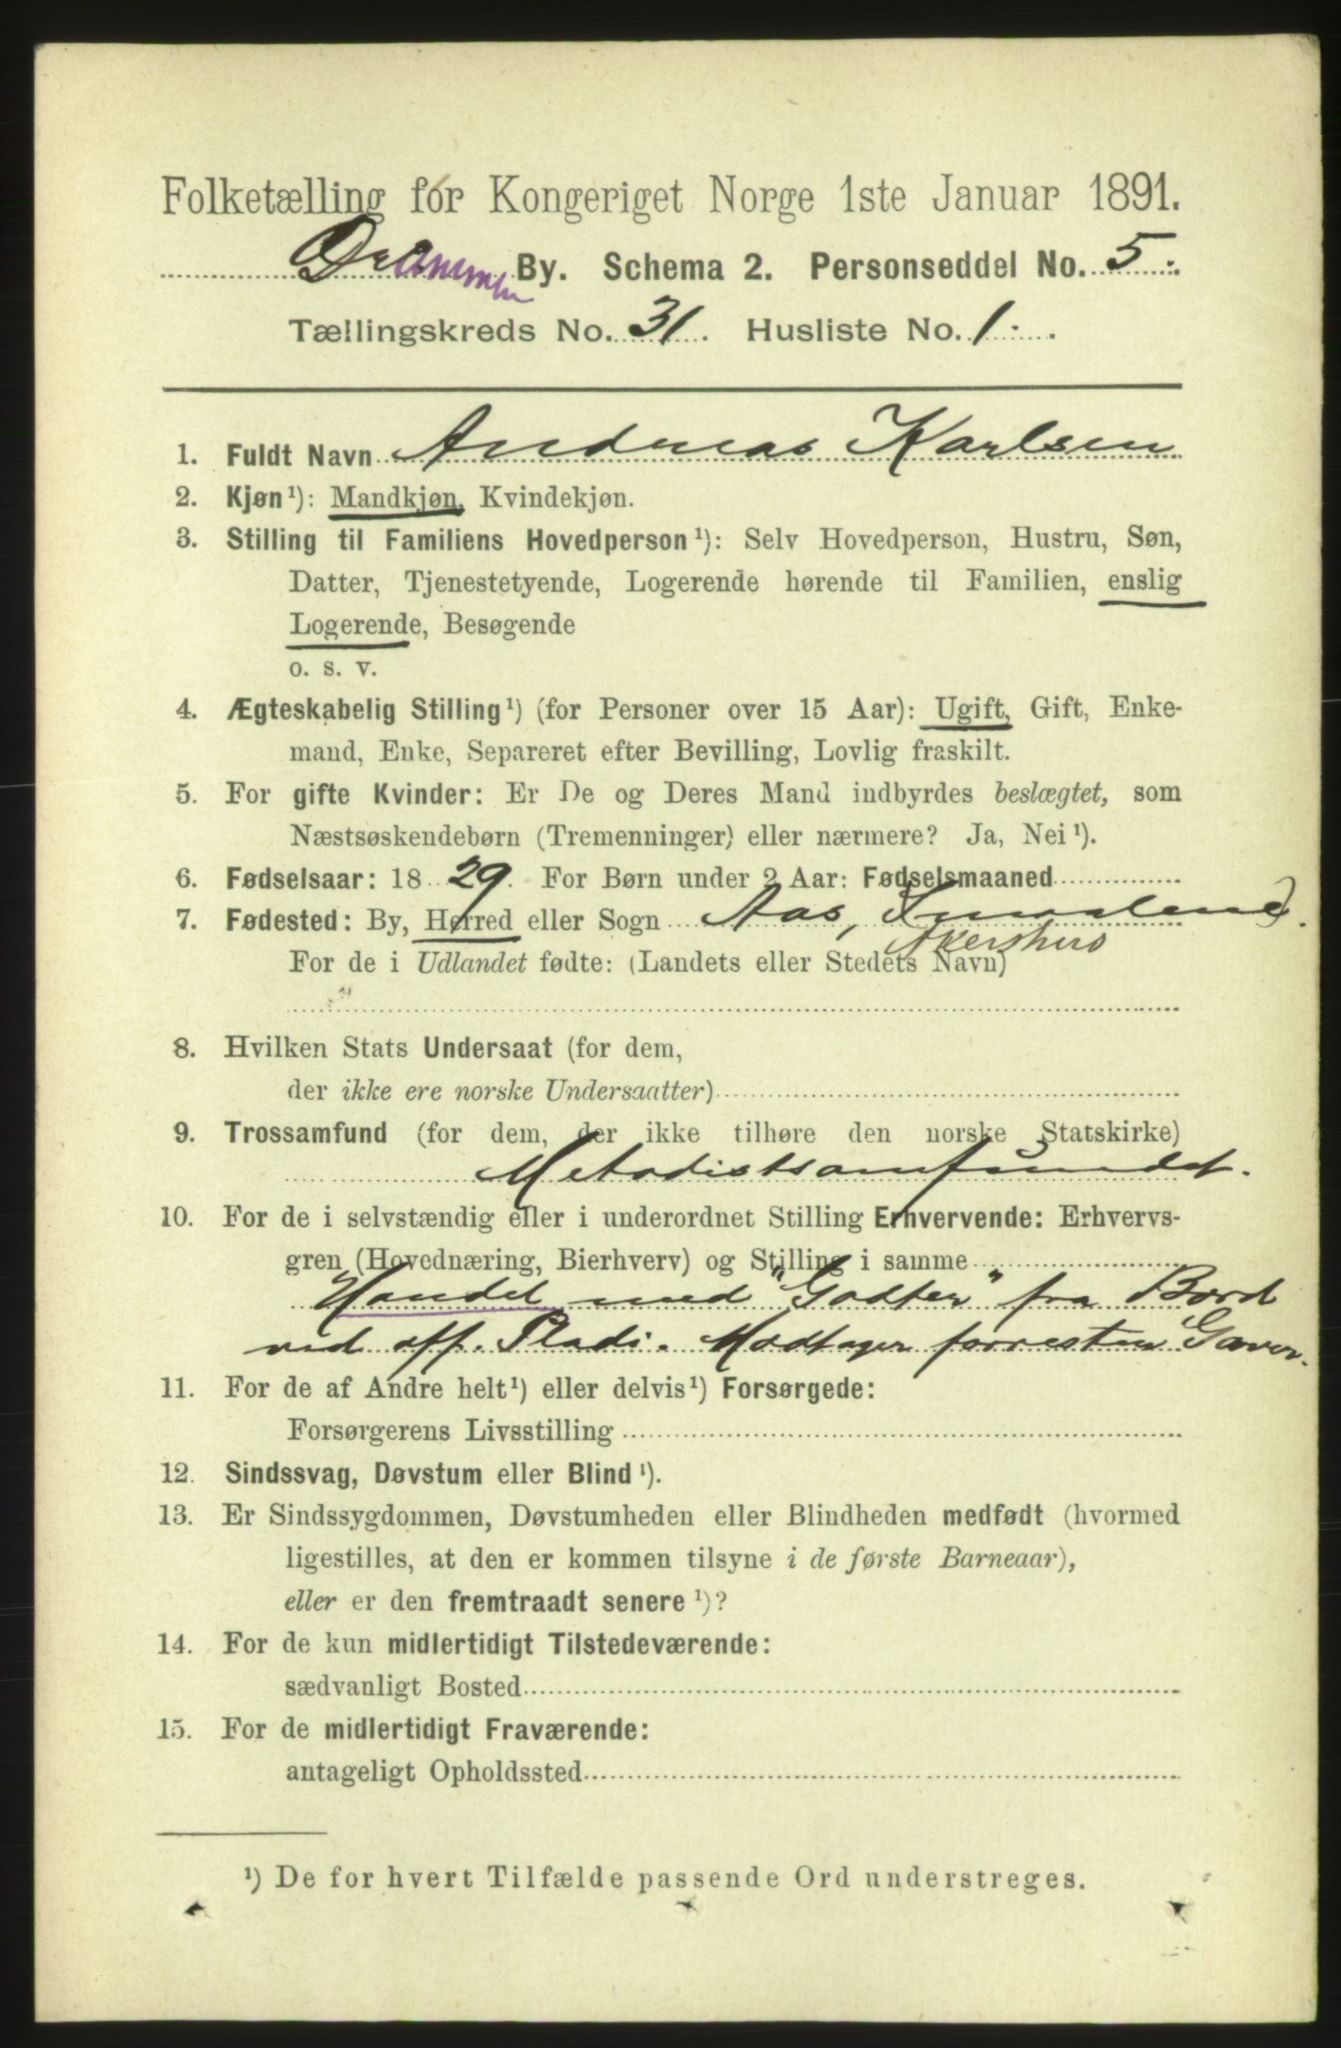 Folketælling for Kongeriget Norge 1ste Januar 1891.
Drammen By. Schema 2. Personseddel No. 5.
Tællingskreds No. 31. Husliste No. 1.
1. Fuldt Navn Andreas Karlsen
2. Kjøn¹): Mandkjøn, Kvindekjøn.
3. Stilling til Familiens Hovedperson¹): Selv Hovedperson, Hustru, Søn,
Datter, Tjenestetyende, Logerende hørende til Familien, enslig
Logerende, Besøgende
o. s. v.
4. Ægteskabelig Stilling¹) (for Personer over 15 Aar): Ugift, Gift, Enke-
mand, Enke, Separeret efter Bevilling, Lovlig fraskilt.
5. For gifte Kvinder: Er De og Deres Mand indbyrdes beslægtet, som
Næstsøskendebørn (Tremenninger) eller nærmere? Ja, Nei¹).
6. Fødselsaar: 1829. For Børn under 2 Aar: Fødselsmaaned
7. Fødested: By, Herred eller Sogn Aas, Smaalene.
Akershus
For de i Udlandet fødte: (Landets eller Stedets Navn)
8. Hvilken Stats Undersaat (for dem,
der ikke ere norske Undersaatter)
9. Trossamfund (for dem, der ikke tilhøre den norske Statskirke)
Metodistsamfundet.
10. For de i selvstændig eller i underordnet Stilling Erhvervende: Erhvervs-
gren (Hovednæring, Bierhverv) og Stilling i samme
Handel med "Godter" fra Bord
ved off. Plads. Modtager forresten Gaver.
11. For de af Andre helt¹) eller delvis¹) Forsørgede:
Forsørgerens Livsstilling
12. Sindssvag, Døvstum eller Blind¹).
13. Er Sindssygdommen, Døvstumheden eller Blindheden medfødt (hvormed
ligestilles, at den er kommen tilsyne i de første Barneaar),
eller er den fremtraadt senere¹)?
14. For de kun midlertidigt Tilstedeværende:
sædvanligt Bosted
15. For de midlertidigt Fraværende:
antageligt Opholdssted
¹) De for hvert Tilfælde passende Ord understreges.